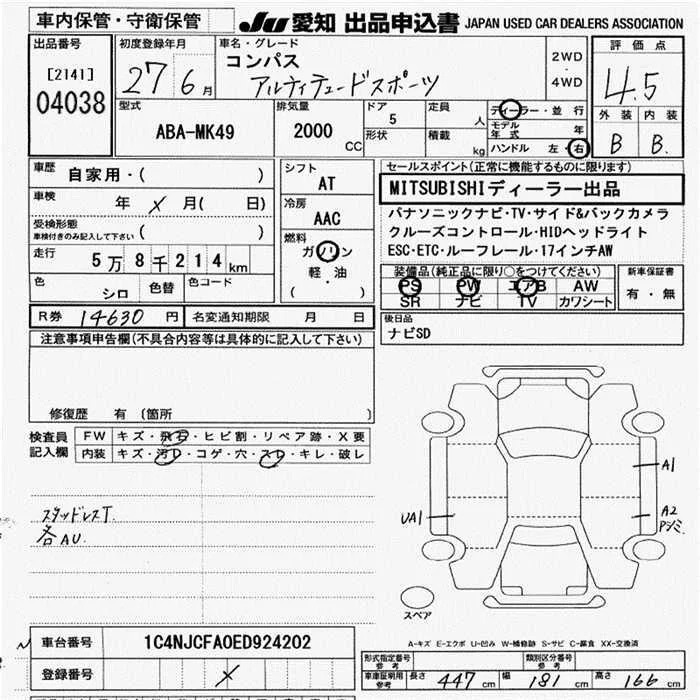 車内保管・守衛保管
JU 愛知 出品申込書 JAPAN USED CAR DEALERS ASSOCIATION
出品番号
[2141]
04038
初度登録年月
27 6月
車名・グレード
コンパス
アルティテュードスポーツ
2WD
・
4WD
評価点
4.5
外装 内装
B B.
型式
ABA-MK49
排気量
2000 CC
ドア
5
定員
人
形状
積載
kg
ディーラー・並行
モデル年式 年
ハンドル 左・右
車歴
自家用・( )
車検
年 × 月( 日)
受検形態
車検付きのみ記入して下さい ( )
走行
5万8千214km
色
シロ
色替
色コード
シフト
AT
冷房
AAC
燃料
ガソリン
軽・油
( )
セールスポイント(正常に機能するものに限ります)
MITSUBISHIディーラー出品
パナソニックナビ・TV・サイド&バックカメラ
クルーズコントロール・HIDヘッドライト
ESC・ETC・ルーフレール・17インチAW
装備品(純正品に限り○をつけてください)
PS PW エアB AW
SR ナビ TV カワシート
新車保証書
有・無
R券 14630 円
名変通知期限 月 日
後日品
ナビSD
注意事項申告欄(不具合内容等は具体的に記入して下さい)
修復歴 有 (箇所 )
検査員
記入欄
FW キズ・飛石・ヒビ割・リペア跡・X要
内装 キズ・汚レ・コゲ・穴・スレ・キレ・破レ
スタッドレスT.
各AU.
UA1
A1
A2
スペア
A-キズ E-エクボ U-凹み W-補修跡 S-サビ C-腐食 XX-交換済
車台番号 1C4NJCFA0ED924202
登録番号 ×
形式指定番号 参考
類別区分番号 参考
車庫証明用 参考
長さ 447 cm
幅 181 cm
高さ 166 cm